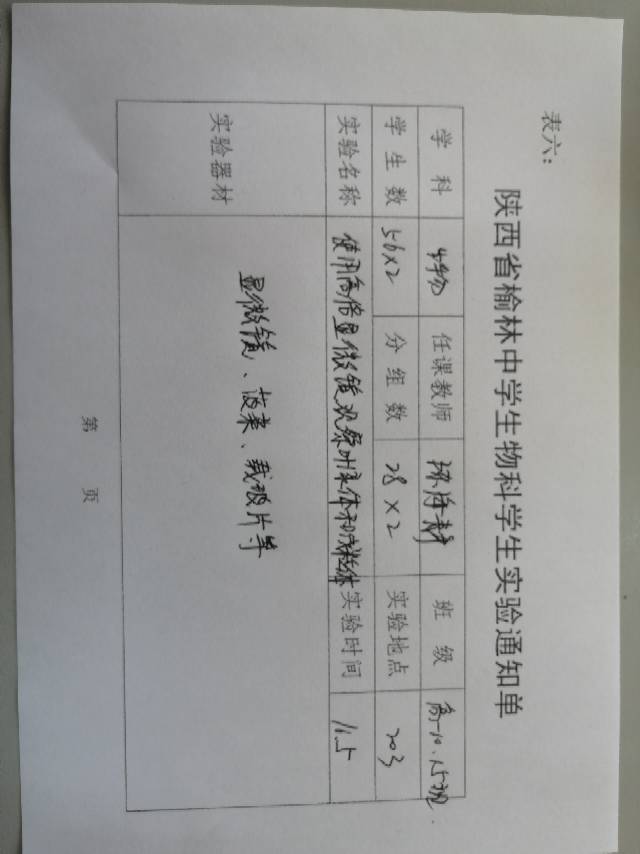 表六:
陕西省榆林中学生物科学生实验通知单
学 科 生物 任课教师 班 级 高一10、15班
学 生 数 56×2 分 组 数 28×2 实验地点 203
实验名称 使用高倍显微镜观察叶绿体和线粒体 实验时间 11.5
实验器材 显微镜、菠菜、载玻片等
第 页